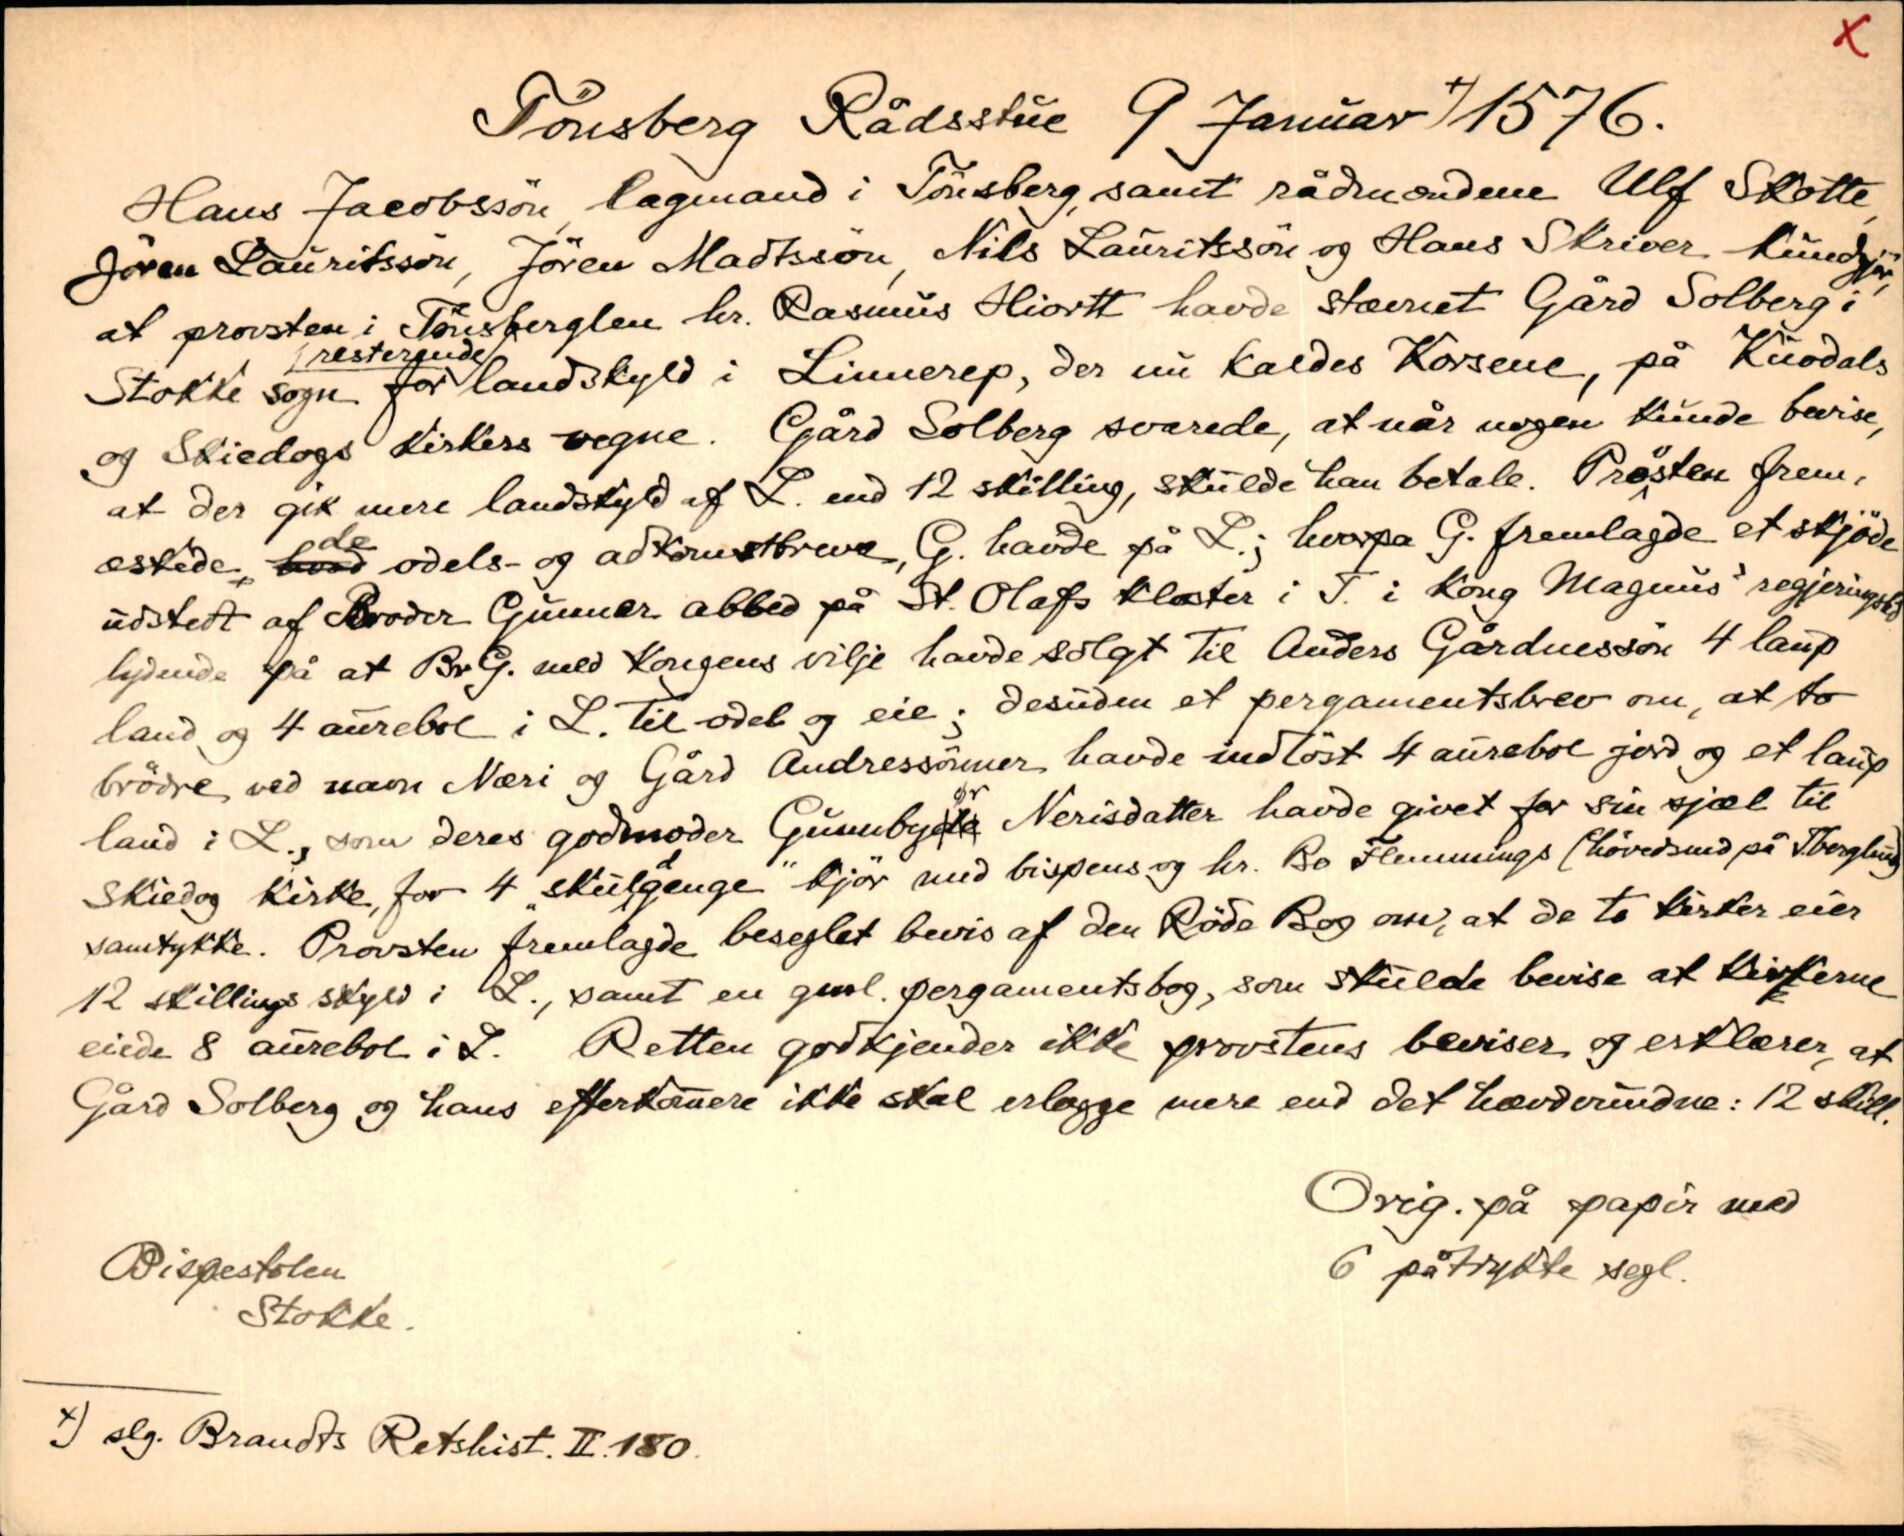 x
Tönsberg Rådsstue 9 Januar +) 1576.
Hans Jacobssön, lagmand i Tönsberg, samt rådmændene Ulf Skotte,
Jören Lauritssön, Jören Madtssön, Nils Lauritssön og Hans Skriver kundgjör,
at provsten i Tönsberglen hr. Rasmus Hiortt havde stævnet Gård Solberg i
Stokke sogn for resterende landskyld i Linnerep, der nu kaldes Korsene, på Kuodals
og Skiedogs kirkers vegne. Gård Solberg svarede, at når nogen kunde bevise,
at der gik mere landskyld af L. end 12 skilling, skulde han betale. Prösten frem-
æskede de odels- og adkomstbreve, G. havde på L.; hvorpa G. fremlagde et skjöde
udstedt af Broder Gunner abbed på St. Olafs kloster i T. i kong Magnus' regjeringstid
lydende på at Br G. med kongens vilje havde solgt til Anders Gårdnessön 4 laup
land og 4 aurebol i L. til odel og eie; desuden et pergamentsbrev om, at to
brödre ved navn Næri og Gård Andressönner havde indlöst 4 aurebol jord og et laup
land i L., som deres godmoder Gunnbyör Nerisdatter havde givet for sin sjæl til
Skiedog kirke, for 4 "skuldgenge" kjör med bispens og hr. Bo Flemmings (hövedsmd på Tberglhus)
samtykke. Provsten fremlagde beseglet bevis af den Röde Bog om, at de to kirker eier
12 skillings skyld i L., samt en gml. pergamentsbog, som skulde bevise at kirkerne
eiede 8 aurebol i L. Retten godkjender ikke provstens beviser og erklærer, at
Gård Solberg og hans efterkommere ikke skal erlægge mere end det hævdvundne: 12 skill.
Orig. på papir med
6 påtrykte segl.
Bispestolen
Stokke.
+) slg. Brandts Retshist. II. 180.